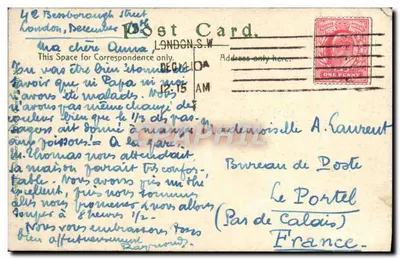 42 Bessborough Street
London, December 13th
Post Card.
Ma chère Anna
This Space for Correspondence only.
Address only here.
LONDON. S.W
DEC 14 10
12.15 AM
ONE PENNY
Tu vas être bien étonnée de
savoir que ni Papa ni moi
n'avons été malades. Nous
n'avons pas même changé de
couleur bien que le 1/3 des pas-
sagers ait donné à manger
aux poissons. — A la gare
St Thomas nous attendait
la maison paraît très confor-
table. Nous avons pris un thé
excellent, puis nous sommes
allés nous promener & nous allons
souper à 8 heures 1/2.
Nous vous embrassons tous
bien affectueusement
Raymond
Mademoiselle A. Laurent
Bureau de Poste
Le Portel
(Pas de Calais)
France.